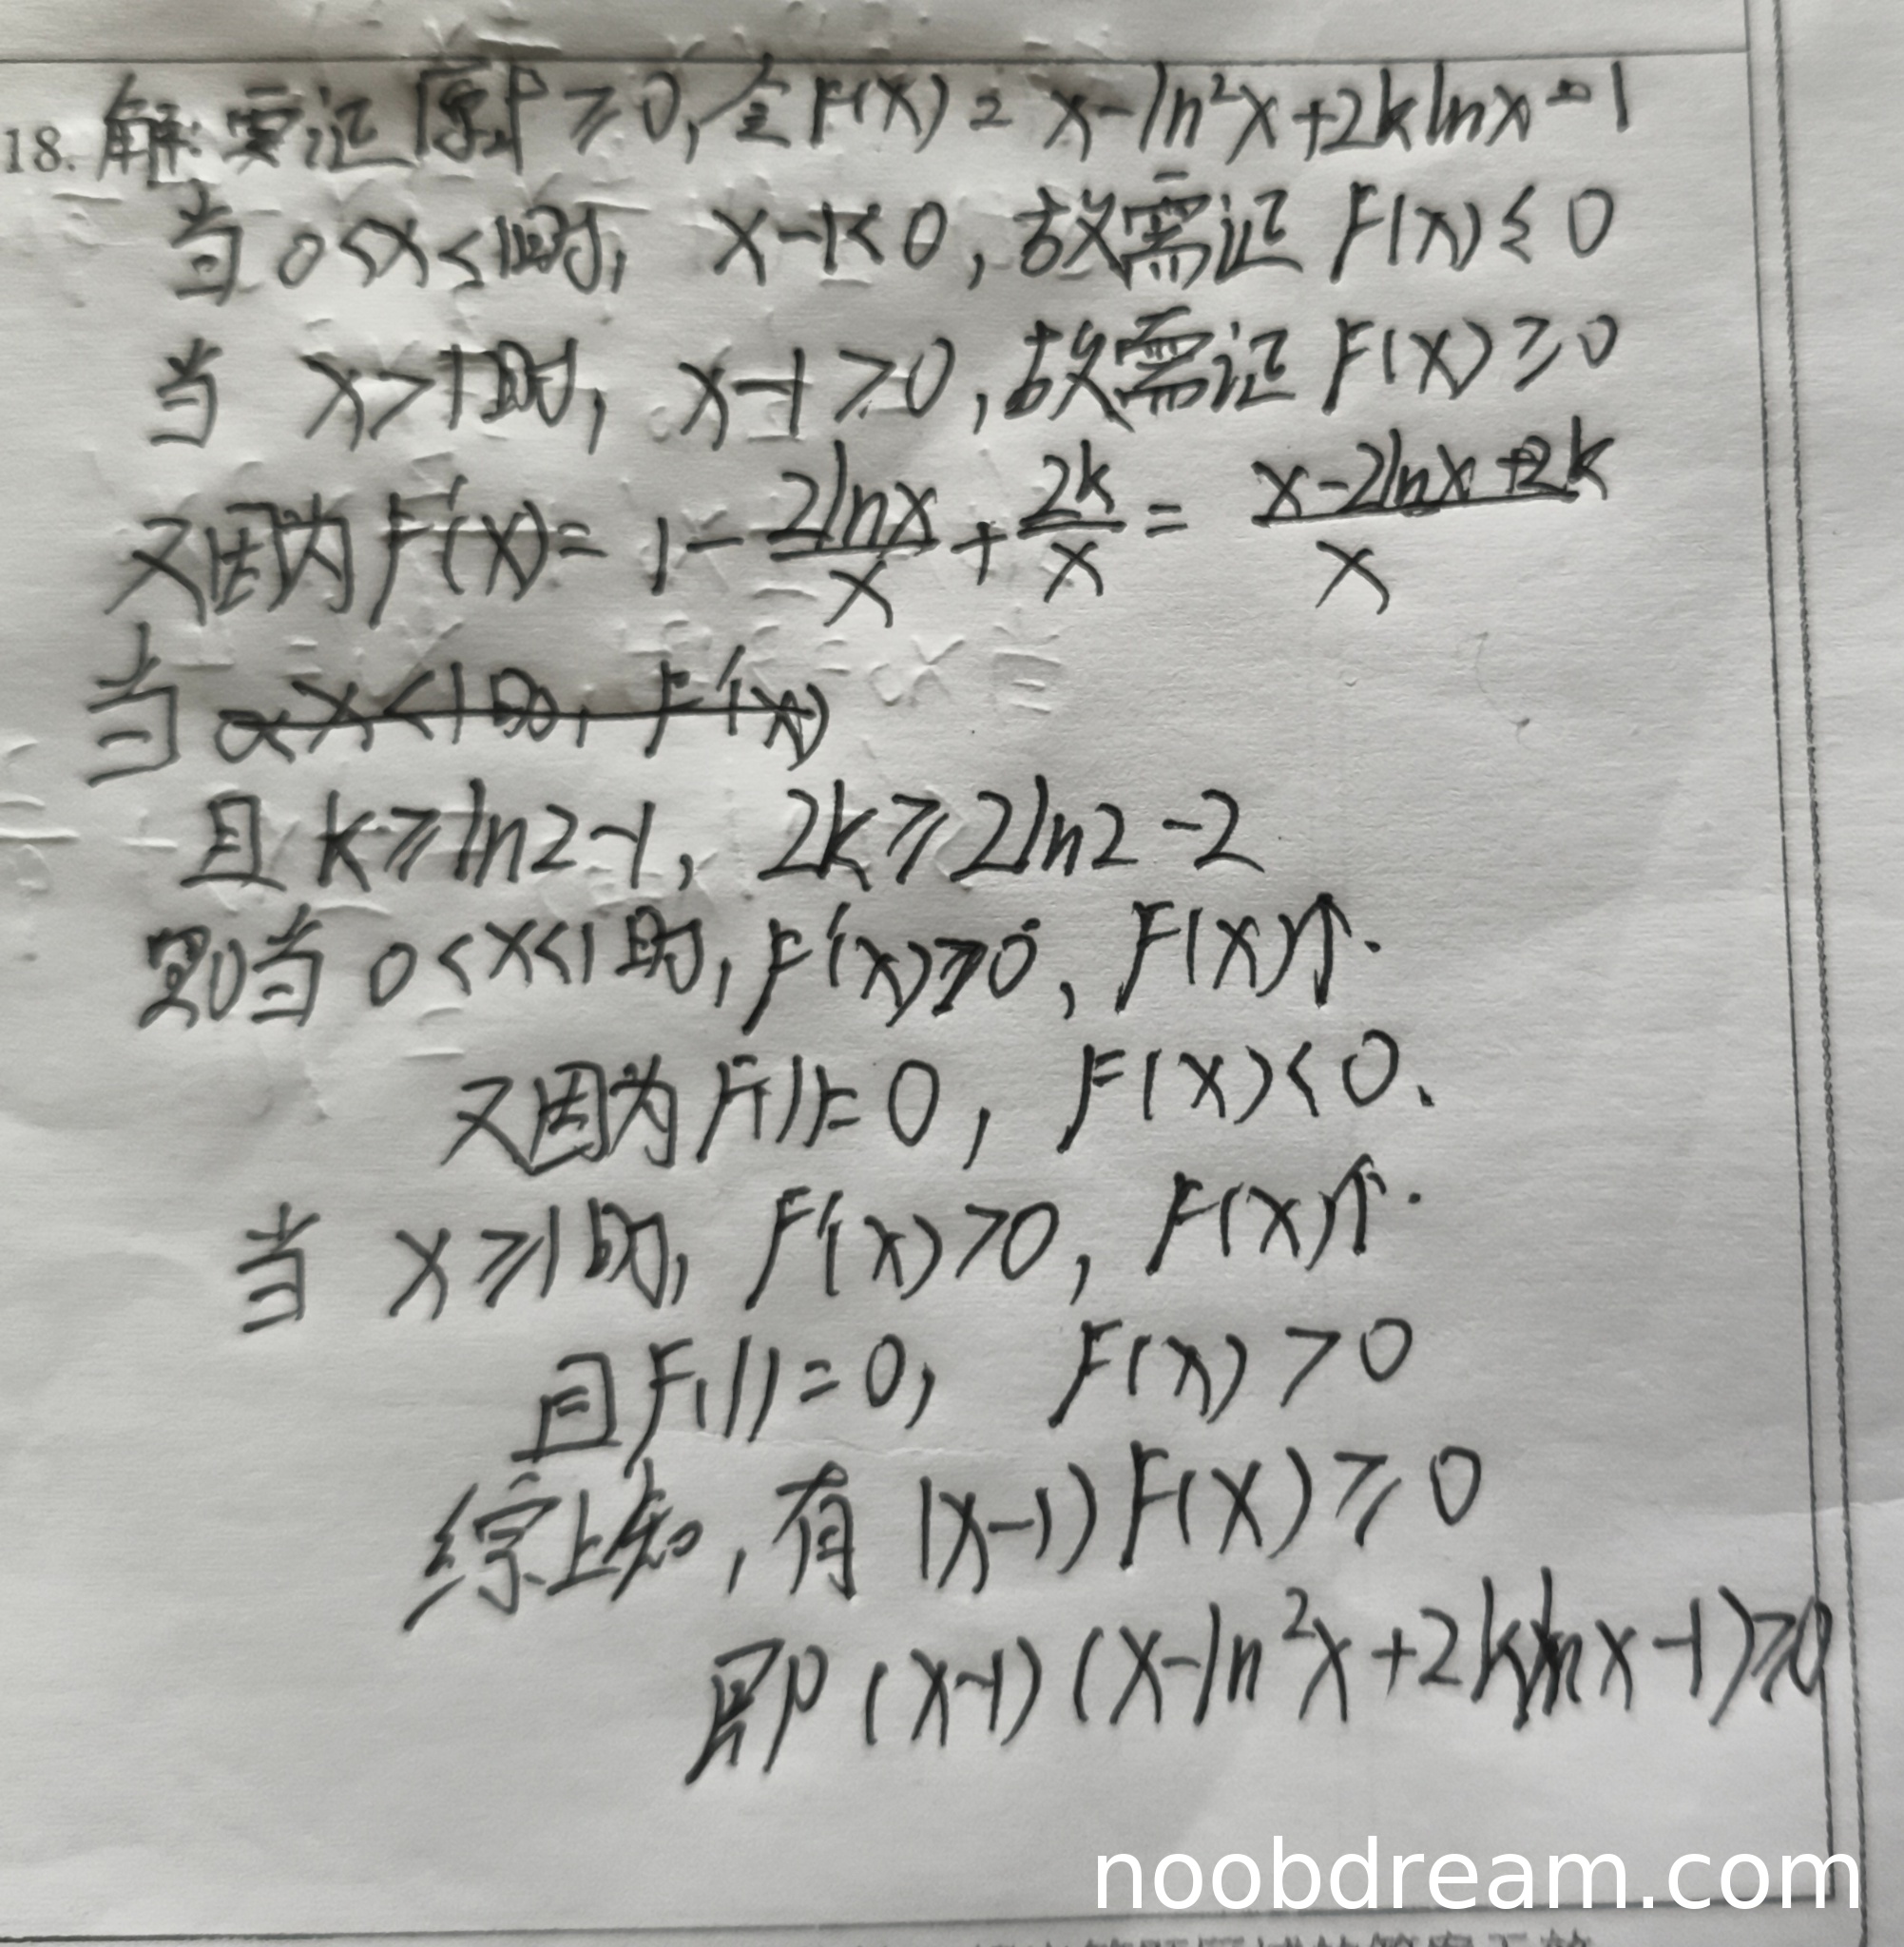 18. 解: 要证原式≥0, 令F(x)= x-ln²x+2klnx-1
当 0<x<1时, x-1<0, 故需证 F(x)≤0
当 x>1时, x-1>0, 故需证 F(x)≥0
又因为 F'(x)= 1-2lnx/x+2k/x= x-2lnx+2k/x
当 0<x<1时, F'(x)
且 k≥ln2-1, 2k≥2ln2-2
则当 0<x<1时, F'(x)≥0, F(x)↑.
又因为 F(1)=0, F(x)<0.
当 x≥1时, F'(x)>0, F(x)↑.
且 F(1)=0, F(x)>0
综上知, 有 (x-1)F(x)≥0
即 (x-1)(x-ln²x+2klnx-1)≥0
noobdream.com